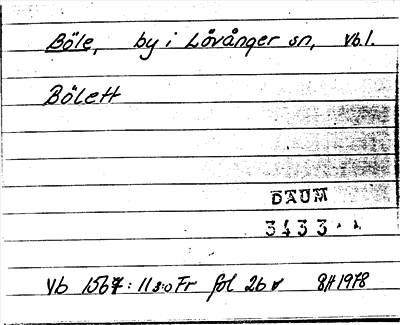 Böle, by i Lövånger sn, Vb.l.
Bölett
DAUM
3433
Vb 1567: 11 s:o Fr fol 2b v 8/4 1978